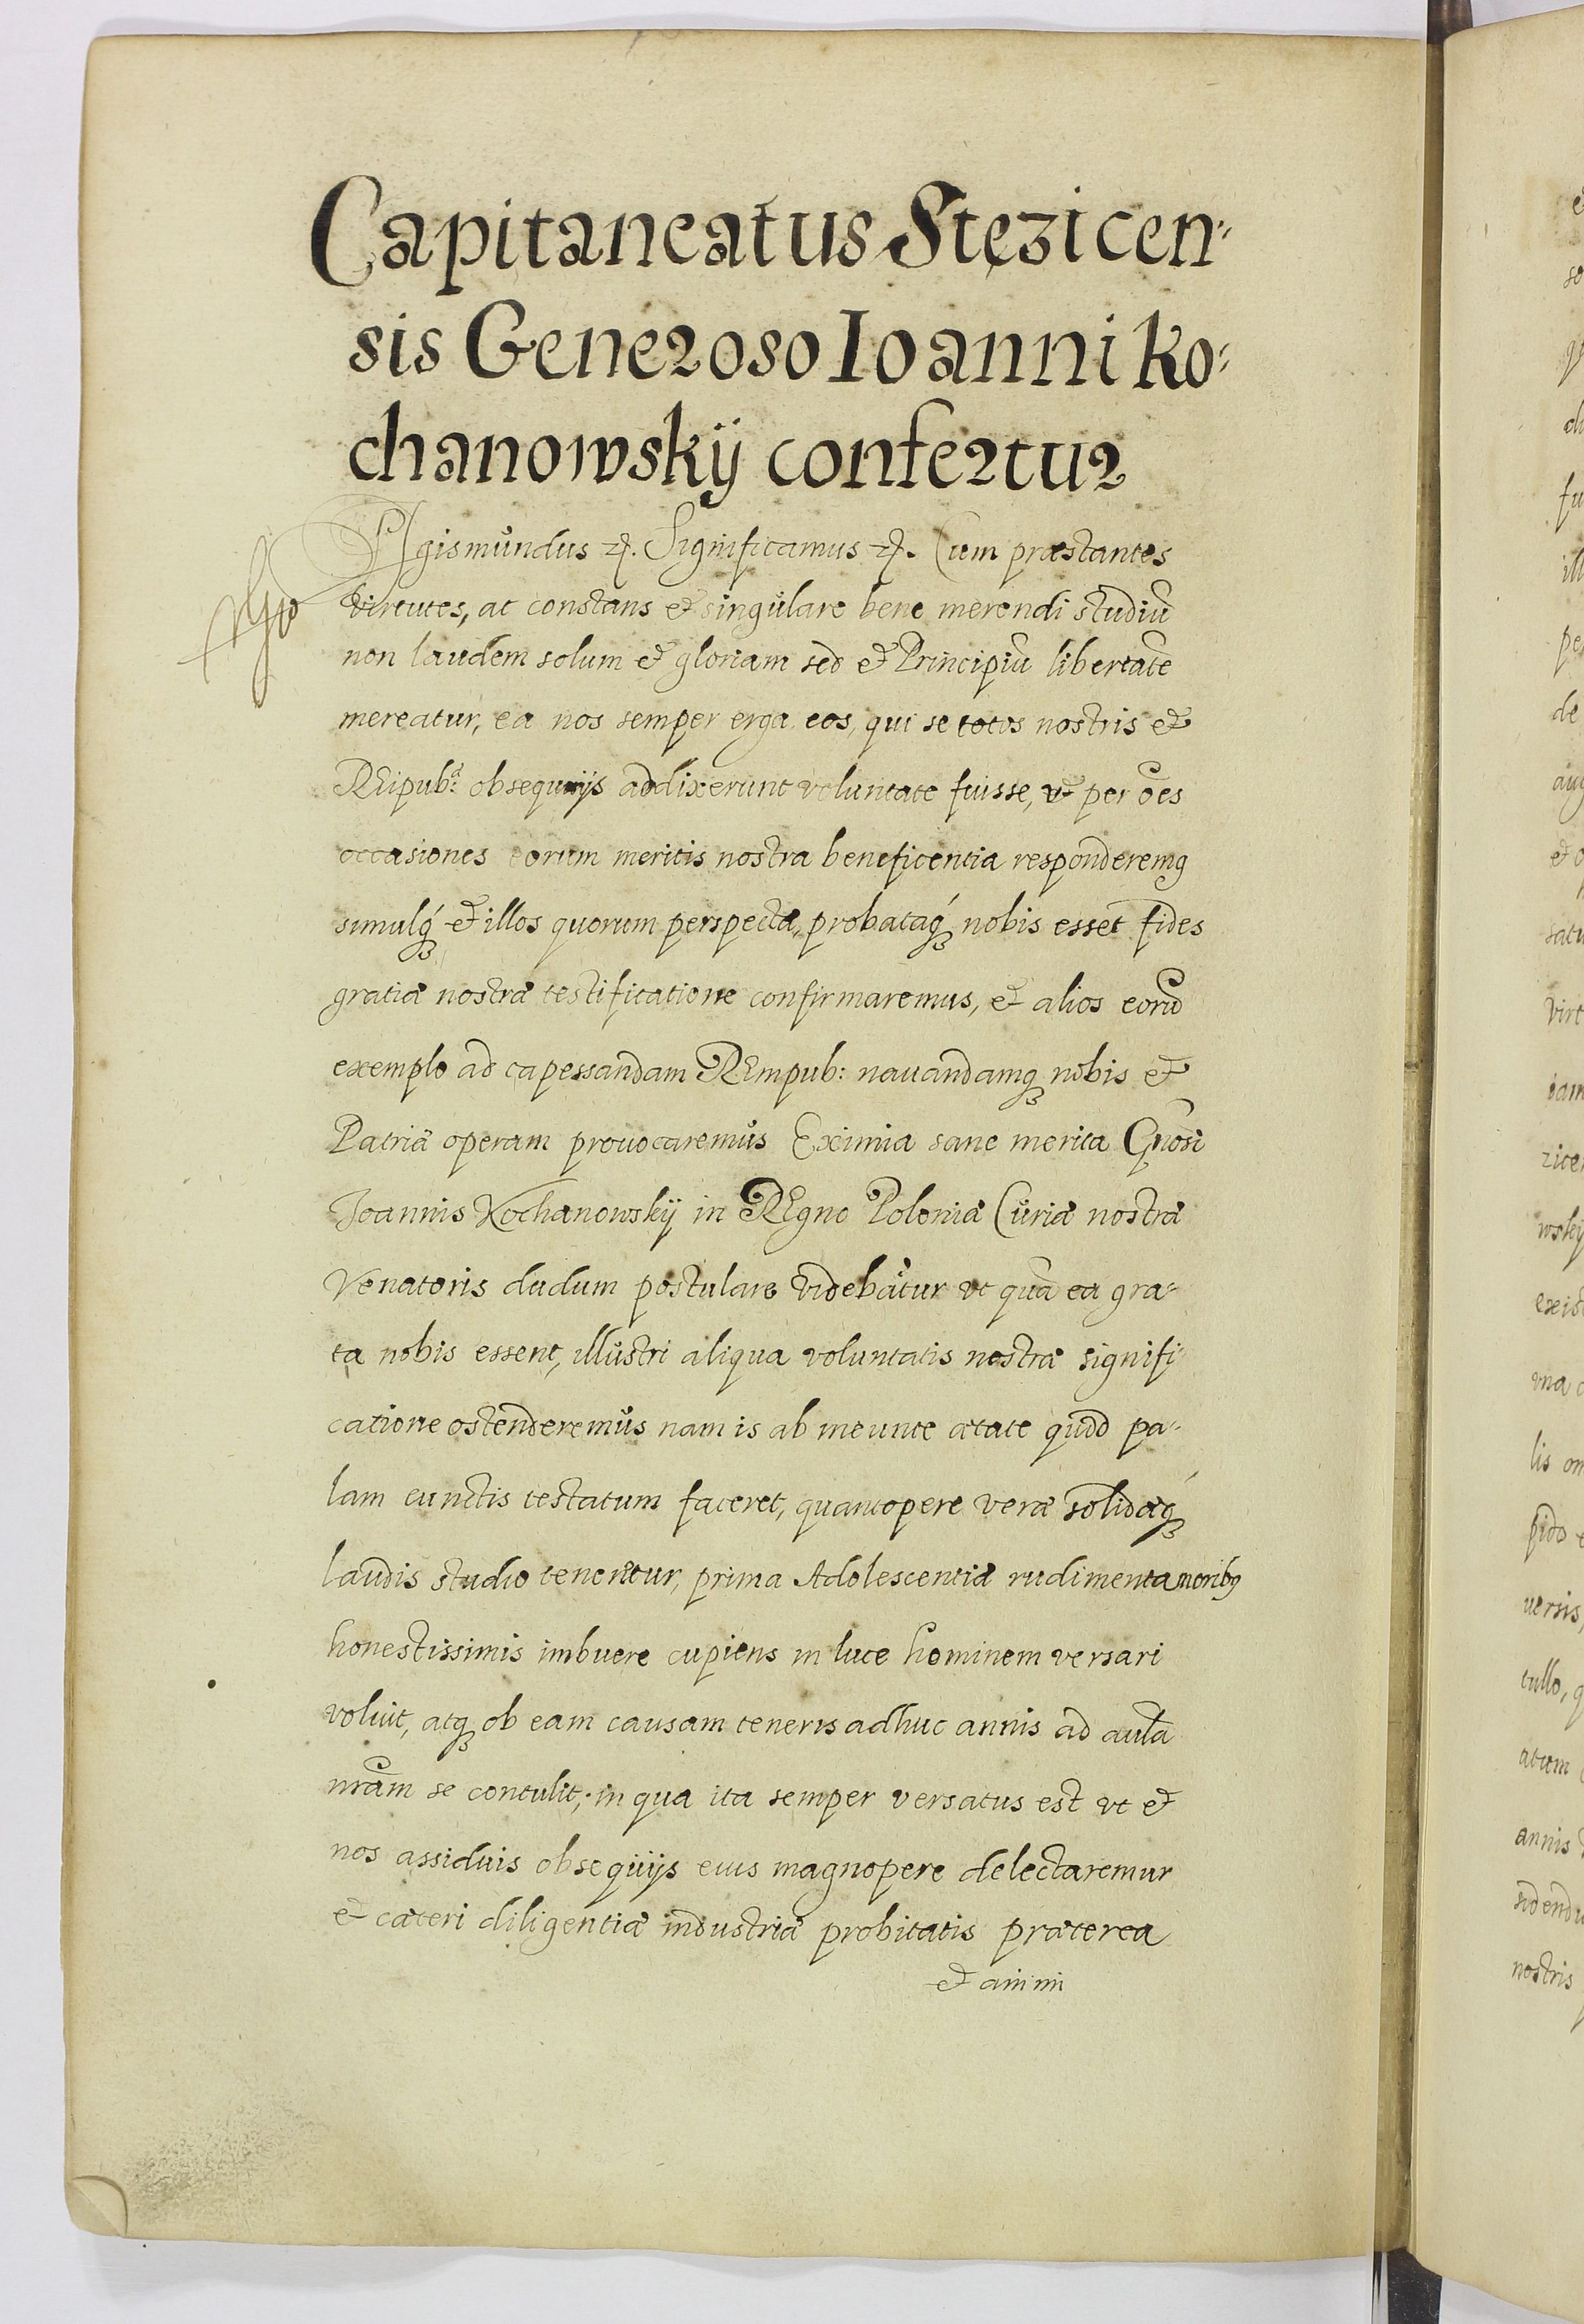 Capitaneatus Stęzicen-
sis Generoso Ioanni Ko-
chanowskÿ confertur
Sigismundus etc. Significamus etc. Cum præstantes
virtutes, ac constans et singulare bene merendi studiū
non laudem solum et gloriam sed et Principiū libertatē
mereatur, ea nos semper erga eos, qui se totos nostris et
REipub: obsequijs addixerunt voluntate fuisse, vt per oēs
occasiones eorum meritis nostra beneficentia responderemꝰ
simulq́ꝫ et illos quorum perspecta, probataq́ꝫ nobis esset fides
gratiæ nostræ testificatione confirmaremus, et alios eorū
exemplo ad capessandam REmpub: nauandamqꝫ nobis et
Patriæ operam prouocaremus Eximia sane merita Gnosi
Joannis Kochanowskÿ in REgno Poloniæ Curiæ nostræ
Venatoris dudum postulare videbātur vt quā ea gra-
ta nobis essent, illustri aliqua voluntatis nostræ signifi-
catione ostenderemus nam is ab ineunte ætate quod pa-
lam cunctis testatum faceret, quantopere veræ solidæq́ꝫ
laudis studio teneretur, prima Adolescentiæ rudimenta moribꝰ
honestissimis imbuere cupiens in luce hominem versari
voluit, atqꝫ ob eam causam teneris adhuc annis ad aulā
nrām se contulit; in qua ita semper versatus est vt et
nos assiduis obsequijs eius magnopere delectaremur
et cæteri diligentiæ industriæ probitatis præterea
et animi